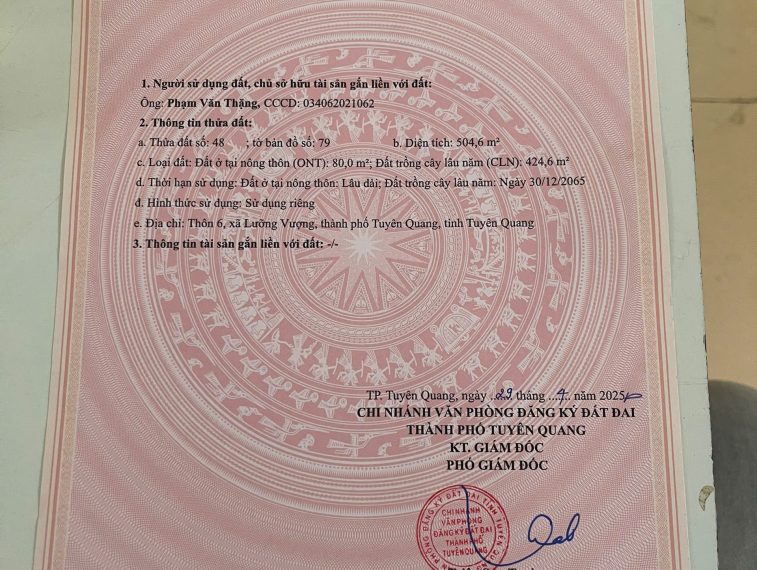 1. Người sử dụng đất, chủ sở hữu tài sản gắn liền với đất:
Ông: Phạm Văn Thặng, CCCD: 034062021062
2. Thông tin thửa đất:
a. Thửa đất số: 48 ; tờ bản đồ số: 79 b. Diện tích: 504,6 m²
c. Loại đất: Đất ở tại nông thôn (ONT): 80,0 m²; Đất trồng cây lâu năm (CLN): 424,6 m²
d. Thời hạn sử dụng: Đất ở tại nông thôn: Lâu dài; Đất trồng cây lâu năm: Ngày 30/12/2065
đ. Hình thức sử dụng: Sử dụng riêng
e. Địa chỉ: Thôn 6, xã Lưỡng Vượng, thành phố Tuyên Quang, tỉnh Tuyên Quang
3. Thông tin tài sản gắn liền với đất: -/-
TP. Tuyên Quang, ngày ..22. tháng ...4.. năm 2025
CHI NHÁNH VĂN PHÒNG ĐĂNG KÝ ĐẤT ĐAI
THÀNH PHỐ TUYÊN QUANG
KT. GIÁM ĐỐC
PHÓ GIÁM ĐỐC
VĂN PHÒNG ĐĂNG KÝ ĐẤT ĐAI TỈNH TUYÊN QUANG
CHI NHÁNH
VĂN PHÒNG
ĐĂNG KÝ ĐẤT ĐAI
THÀNH PHỐ
TUYÊN QUANG